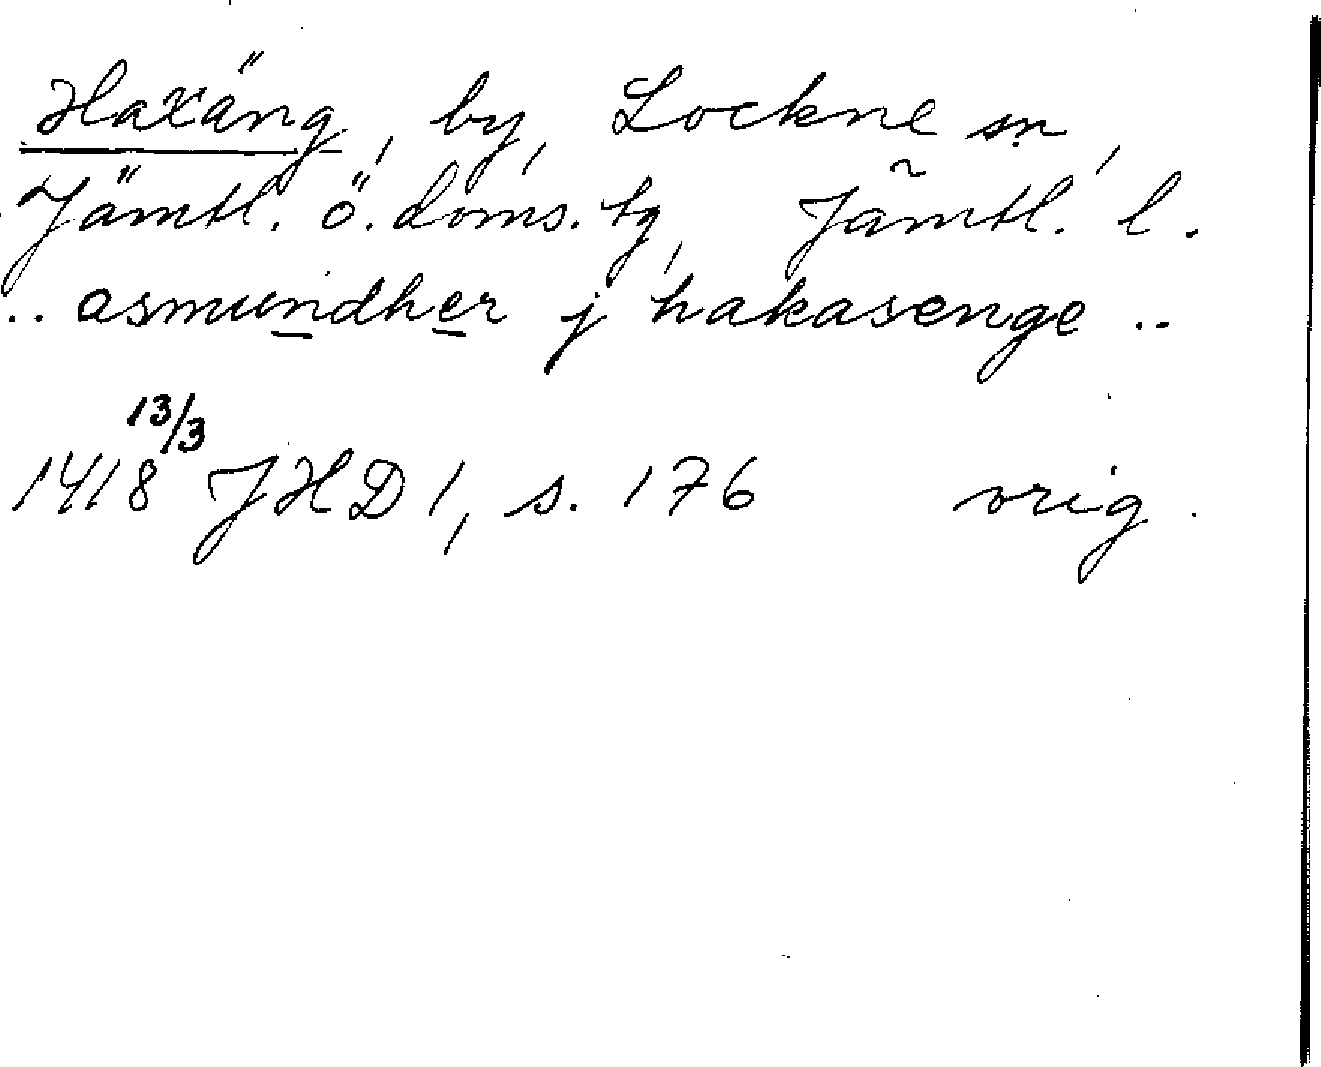 Haxäng, by, Lockne sn,
Jämtl. ö. doms. tg, Jämtl. l.
.. asmundher j hakasenge ..
1418 13/3 JHD 1, s. 176 orig.